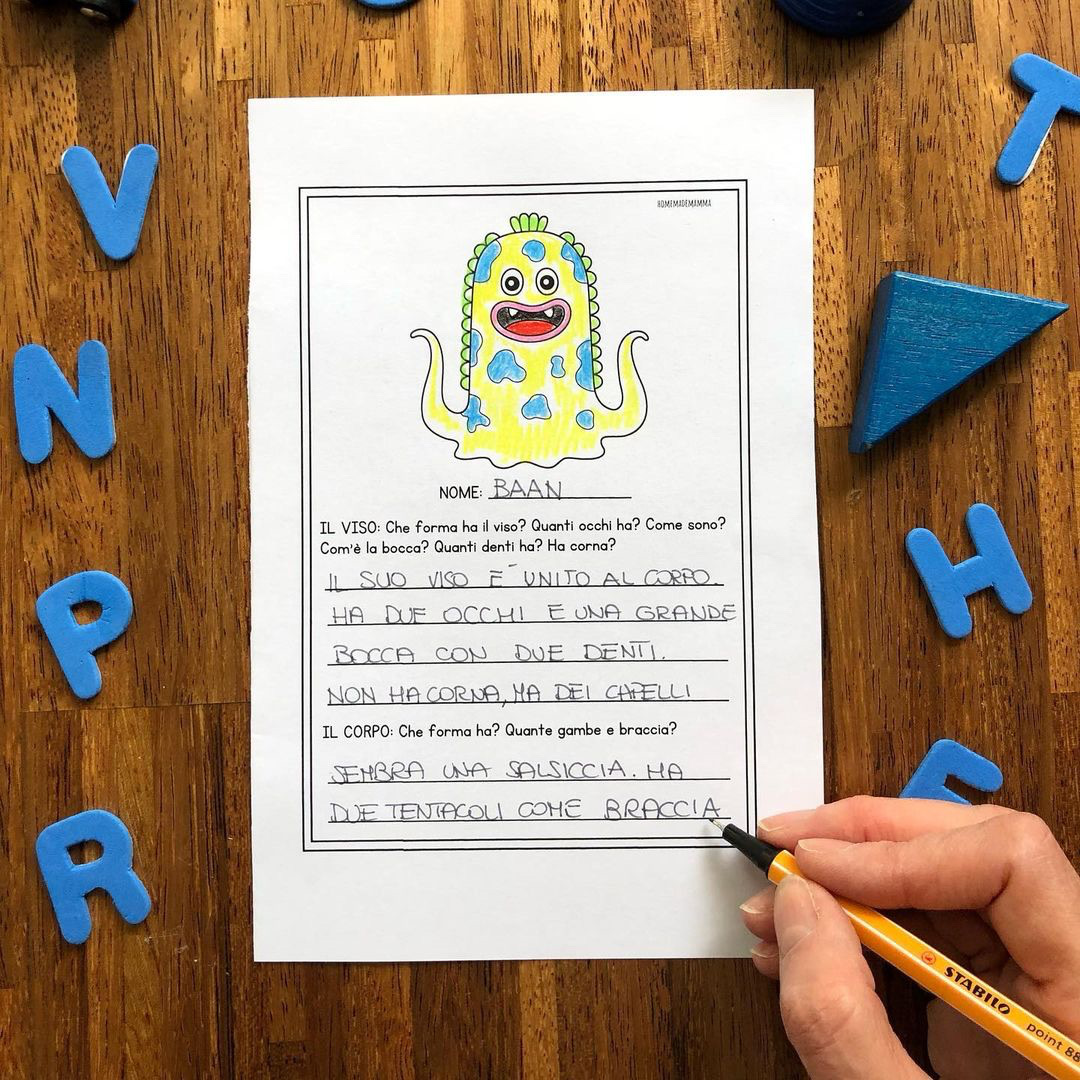 HOMEMADEMAMMA
NOME: BAAN
IL VISO: Che forma ha il viso? Quanti occhi ha? Come sono?
Com'è la bocca? Quanti denti ha? Ha corna?
IL SUO VISO È UNITO AL CORPO.
HA DUE OCCHI E UNA GRANDE
BOCCA CON DUE DENTI.
NON HA CORNA, MA DEI CAPELLI
IL CORPO: Che forma ha? Quante gambe e braccia?
SEMBRA UNA SALSICCIA. HA
DUE TENTACOLI COME BRACCIA
V
T
N
H
P
R
STABILO
point 88